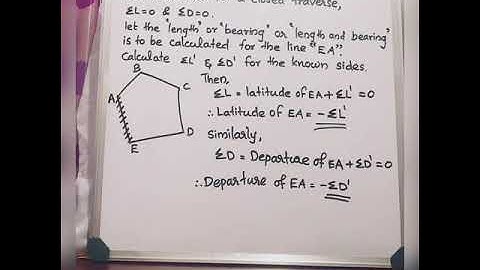 a closed traverse,
ΣL=0 & ΣD=0.
let the "length" or "bearing" or "length and bearing"
is to be calculated for the line "EA".
Calculate ΣL' & ΣD' for the known sides.
Then,
ΣL = latitude of EA + ΣL' = 0
∴ Latitude of EA = -ΣL'
Similarly,
ΣD = Departure of EA + ΣD' = 0
∴ Departure of EA = -ΣD'
B
C
A
D
E